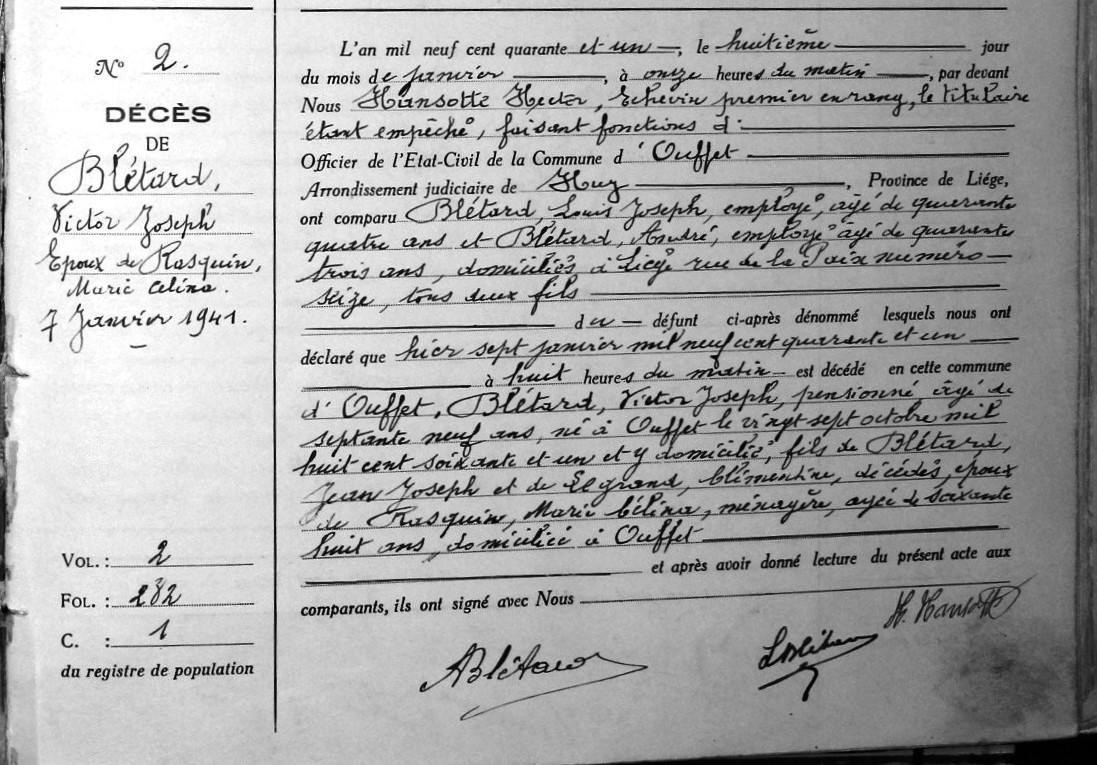 N° 2.
DÉCÈS
DE
Blétard,
Victor Joseph
Epoux de Rasquin,
Marie Célina.
7 Janvier 1941.
VOL. : 2
FOL. : 282
C. : 1
du registre de population
L'an mil neuf cent quarante et un, le huitième jour
du mois de janvier, à onze heures du matin, par devant
Nous Hansotte Hector, Echevin premier en rang, le titulaire
étant empêché, faisant fonctions d'
Officier de l'Etat-Civil de la Commune d'Ouffet
Arrondissement judiciaire de Huy, Province de Liége,
ont comparu Blétard, Louis Joseph, employé, âgé de quarante
quatre ans et Blétard, André, employé âgé de quarante
trois ans, domiciliés à Liége rue de la Paix numéro
seize, tous deux fils
du défunt ci-après dénommé lesquels nous ont
déclaré que hier sept janvier mil neuf cent quarante et un
à huit heures du matin est décédé en cette commune
d'Ouffet, Blétard, Victor Joseph, pensionné, âgé de
septante neuf ans, né à Ouffet le vingt sept octobre mil
huit cent soixante et un et y domicilié, fils de Blétard,
Jean Joseph et de Legrand, Clémentine, décédés, époux
de Rasquin, Marie Célina, ménagère, âgée de soixante
huit ans, domiciliée à Ouffet
et après avoir donné lecture du présent acte aux
comparants, ils ont signé avec Nous
H. Hansotte
ABlétard